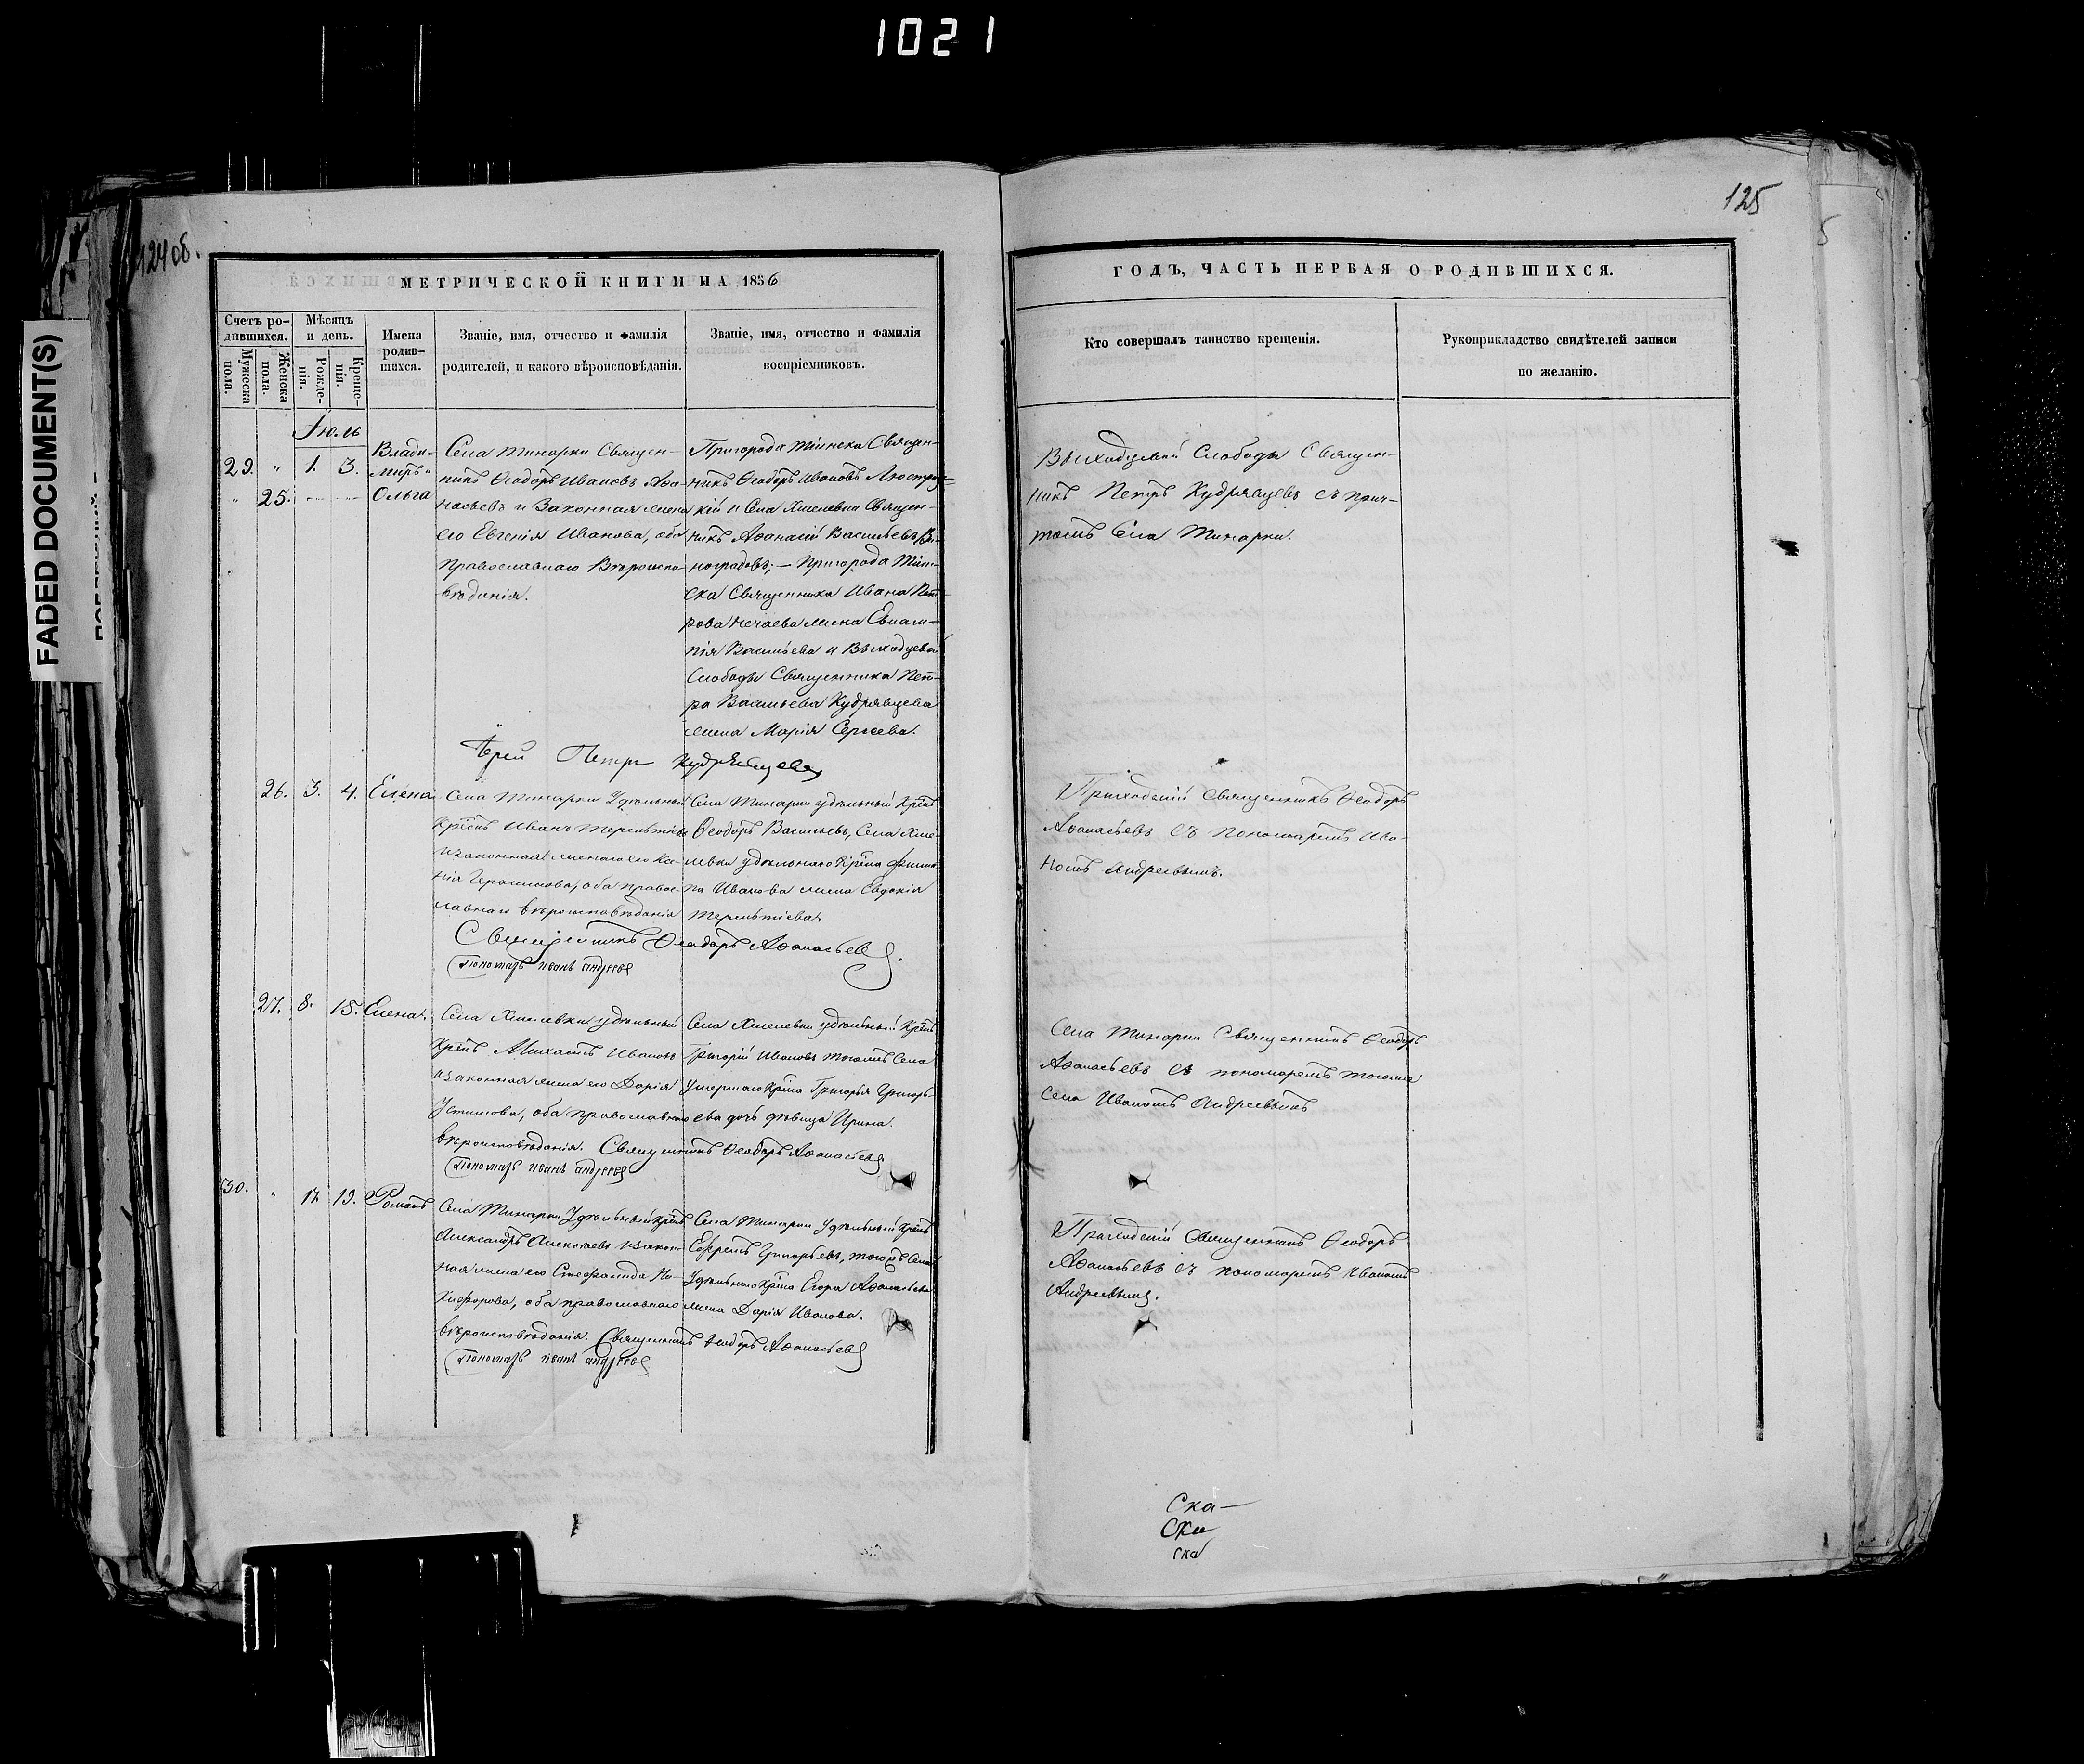 1021
125
124 об.
FADED DOCUMENT(S)
МЕТРИЧЕСКОЙ КНИГИ НА 1856
ГОДЪ, ЧАСТЬ ПЕРВАЯ О РОДИВШИХСЯ.
Счетъ ро-
дившихся.
Мужеска
пола.
Женска
пола.
Мѣсяцъ
и день.
Рожде-
нія.
Креще-
нія.
Имена
родив-
шихся.
Званіе, имя, отчество и фамилія
родителей, и какого вѣроисповѣданія.
Званіе, имя, отчество и фамилія
воспріемниковъ.
Кто совершалъ таинство крещенія.
Рукоприкладство свидѣтелей записи
по желанію.
Іюль
29. " 1. 3.
" 25.
Влади-
миръ и
Ольга
Села Тинарки Священ-
никъ Ѳеодоръ Ивановъ Аѳа-
насьевъ и Законная жена
его Евгенія Иванова, оба
Православнаго Вѣроиспо-
вѣданія.
Пригорода Тіинска Священ-
никъ Ѳеодоръ Ивановъ
кій и Села Хмелевки Священ-
никъ Аѳанасій Васильевъ Ви-
ноградовъ; — Пригорода Тіин-
ска Священника Ивана Пет-
рова Нечаева жена Евлам-
пія Васильева и Выходцевой
Слободы Священника Пет-
ра Васильева Кудрявцева
жена Марія Сергеева.
Выходцевой Слободы Священ-
никъ Петръ Кудрявцевъ съ прич-
томъ Села Тинарки.
Іерей Петръ Кудрявцевъ
26. 3. 4. Елена
Села Тинарки Удѣльный
Крестн Иванъ Терентіевъ
и законная жена его Ксе-
нія Герасимова, оба правос-
лавнаго вѣроисповѣданія
Села Тинарки удѣльный Крестн
Ѳеодоръ Васильевъ, Села Хме-
левки удѣльнаго Крестна Филип-
па Иванова жена Евдокія
Терентіева.
Приходскій Священникъ Ѳеодоръ
Аѳанасьевъ съ пономаремъ Ива-
номъ Андреевымъ.
Священникъ Ѳеодоръ Аѳанасьевъ.
Пономарь Иванъ Андреевъ
27. 8. 15. Елена.
Села Хмелевки удѣльный
Крестн Михаилъ Ивановъ
и законная жена его Дарія
Устинова, оба православнаго
вѣроисповѣданія.
Села Хмелевки удѣльный Крестн
Григорій Ивановъ тогожъ Села
умершаго Крестна Григорья Григорь-
ева дочь дѣвица Ирина.
Села Тинарки Священникъ Ѳеодоръ
Аѳанасьевъ съ пономаремъ тогоже
Села Иваномъ Андреевымъ
Священникъ Ѳеодоръ Аѳанасьевъ
Пономарь Иванъ Андреевъ
30. " 17 19. Романъ
Села Тинарки Удѣльный Крестн
Александръ Алексѣевъ и закон-
ная жена его Стефанида Ни-
кифорова, оба православнаго
вѣроисповѣданія.
Села Тинарки Удѣльный Крестн
Ефремъ Григорьевъ, тогожъ Села
Удѣльнаго Крестна Егора Аѳанасьева
жена Дарія Иванова.
Приходскій Священникъ Ѳеодоръ
Аѳанасьевъ съ пономаремъ Иваномъ
Андреевымъ.
Священникъ Ѳеодоръ Аѳанасьевъ
Пономарь Иванъ Андреевъ
Ска-
Ска
ска